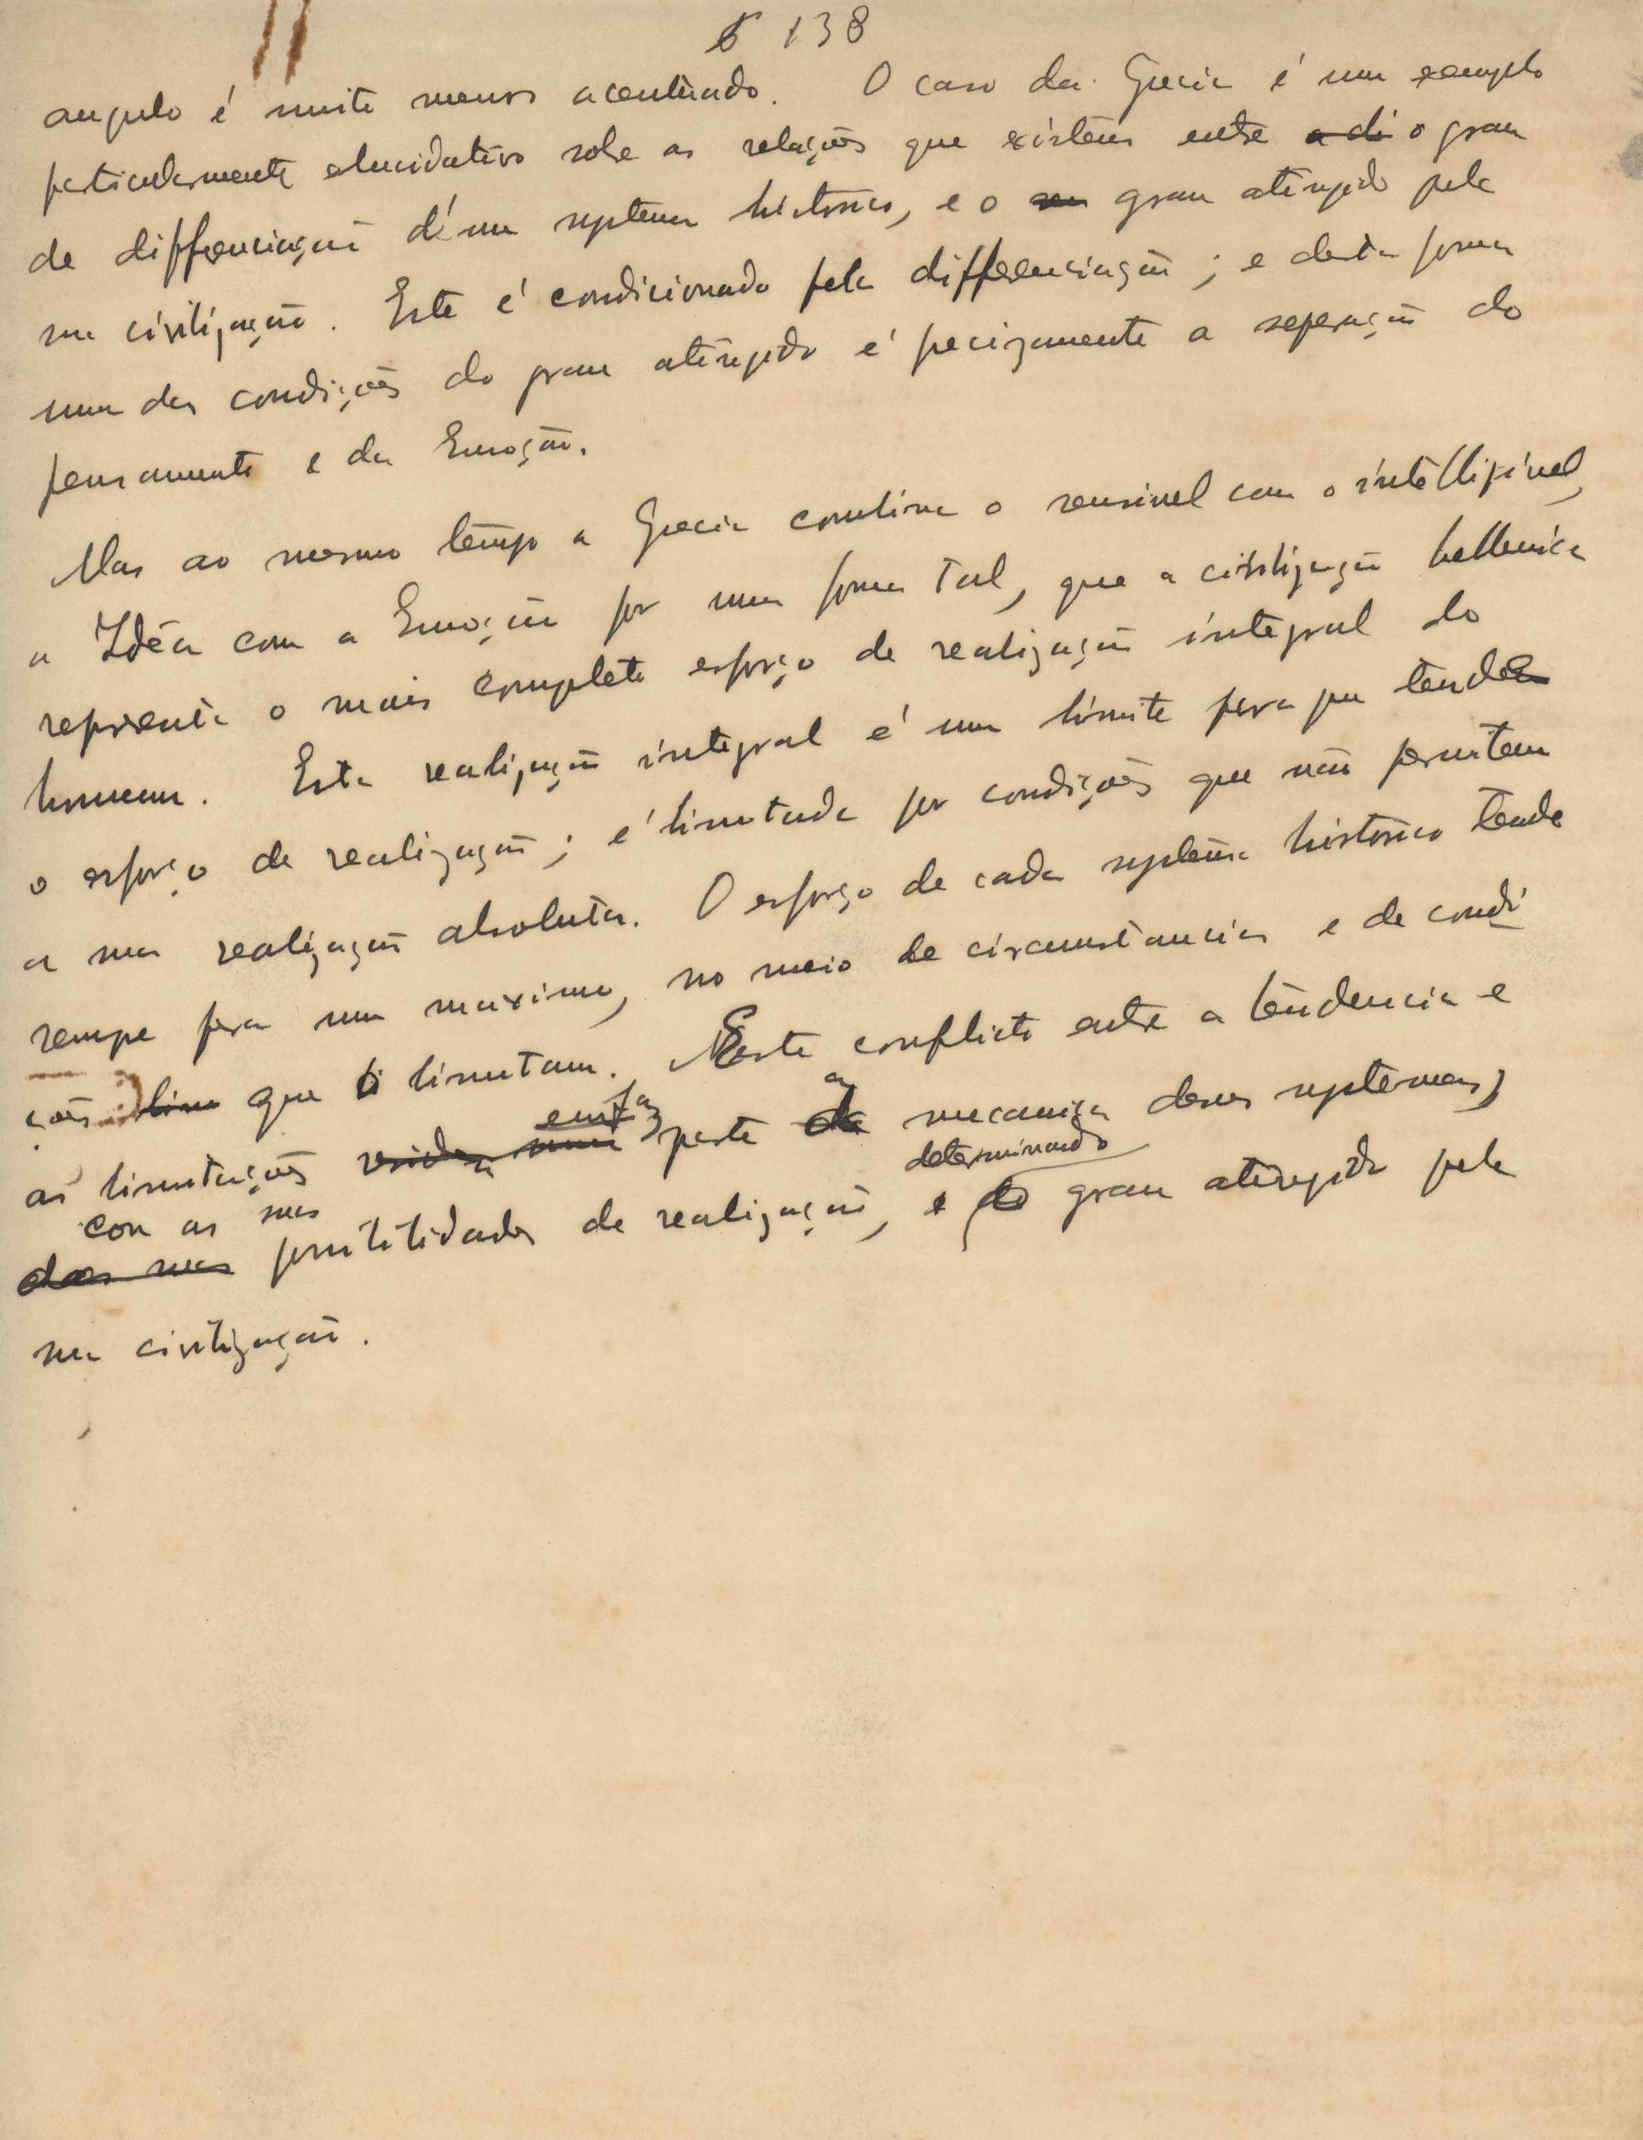 6 138
angulo é muito menos acentuado. O caso da Grecia é um exemplo
particularmente elucidativo sobre as relações que existem entre a di o grau
de differenciação d'um systema historico, e o seu grau atingido pela
sua civilização. Este é condicionado pela differenciação; e desta forma
uma das condições do grau atingido é precizamente a separação do
pensamento e da Emoção.
Mas ao mesmo tempo a Grecia combina o sensivel com o intelligivel,
a Idéa com a Emoção por uma forma tal, que a civilização hellenica
representa o mais completo esforço de realização integral do
homem. Esta realização integral é um limite para que tende
o esforço de realização; é limitada por condições que não permitem
a sua realização absoluta. O esforço de cada systema historico tende
sempre para um maximo, no meio de circumstancias e de condi
ções lim que o limitam. Neste conflicto entre a tendencia e
as limitações reside uma emfaz parte da a mecanica desses systemas,
das suas com as suas possibilidades de realização, e do determinando o grau atingido pela
sua civilização.